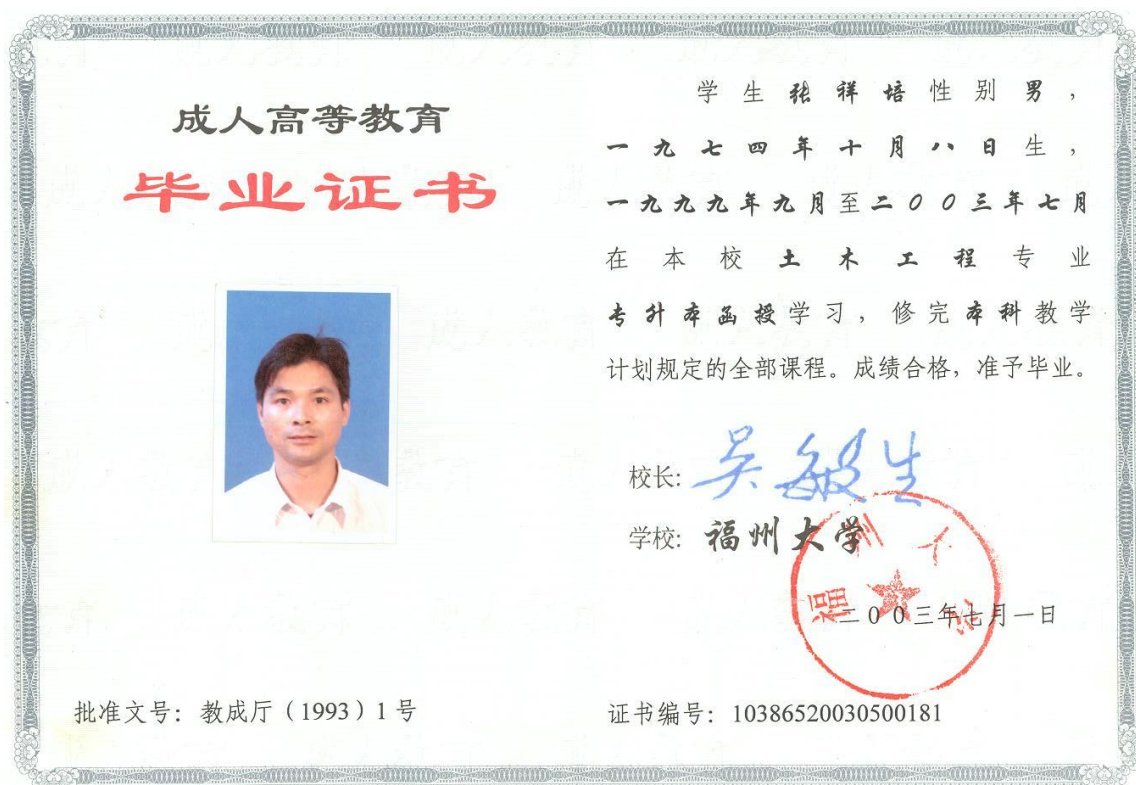 成人高等教育
毕业证书
批准文号：教成厅（1993）1号
学生张祥培性别男，
一九七四年十月八日生，
一九九九年九月至二〇〇三年七月
在本校土木工程专业
专升本函授学习，修完本科教学
计划规定的全部课程。成绩合格，准予毕业。
校长：吴敏生
学校：福州大学
福州大学
二〇〇三年七月一日
证书编号：10386520030500181